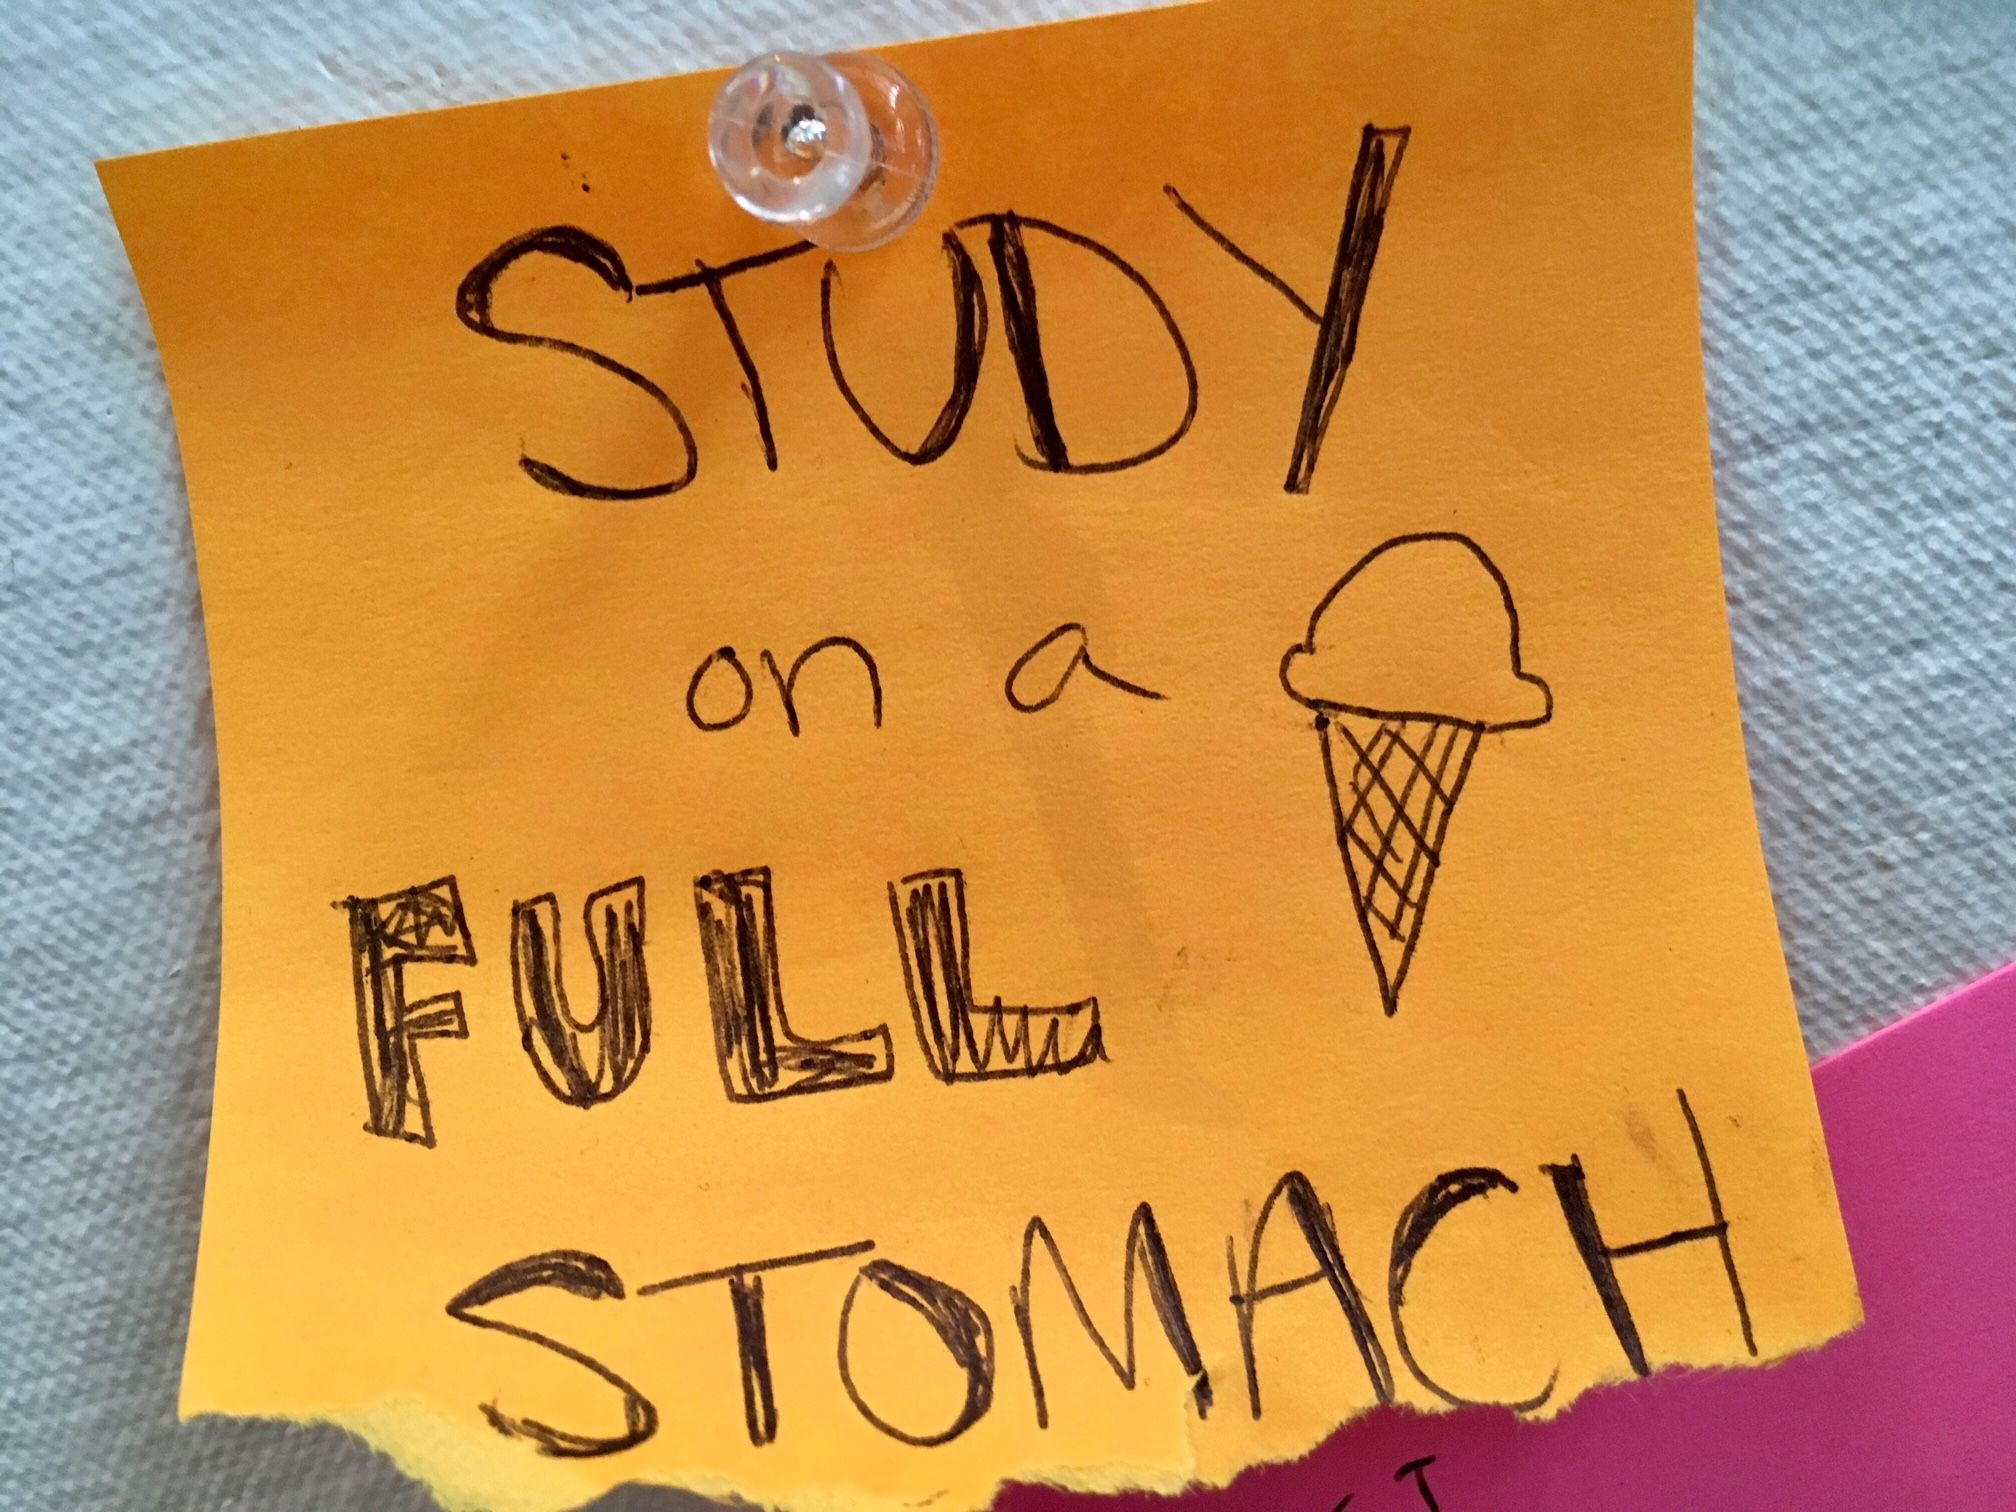 STUDY
on a
FULL
STOMACH